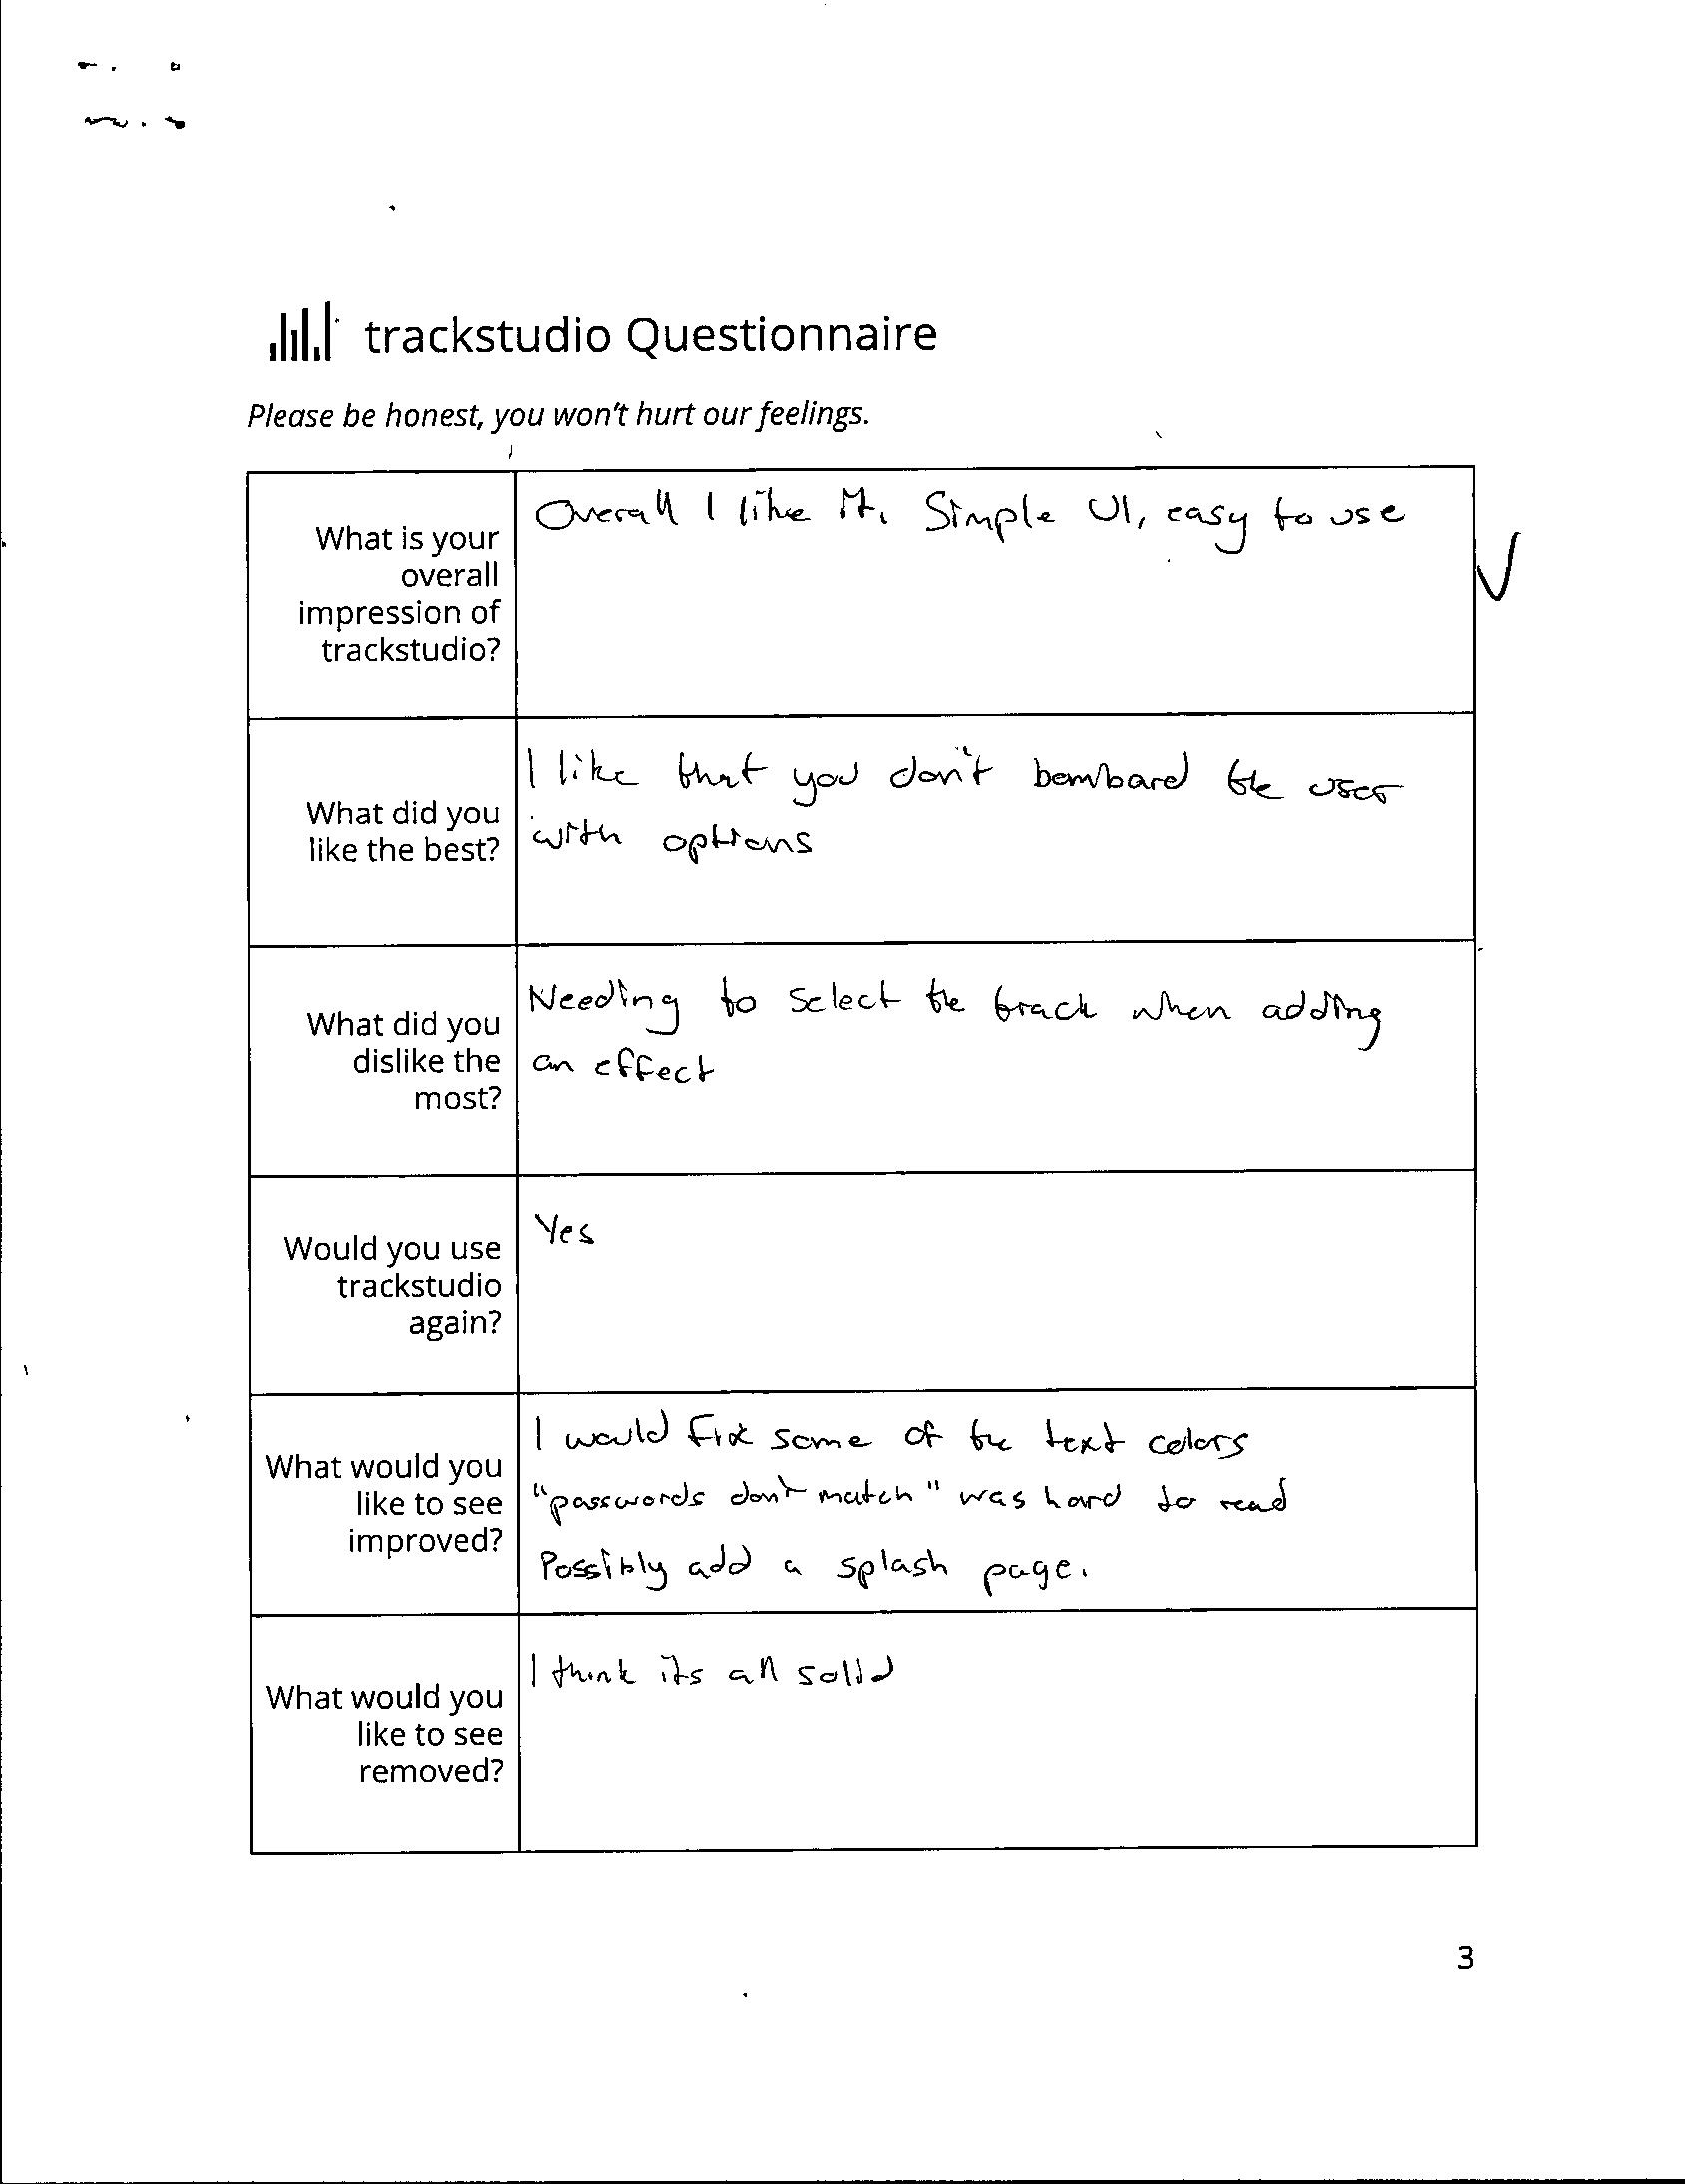 trackstudio Questionnaire
Please be honest, you won't hurt our feelings.
What is your
overall
impression of
trackstudio?
Overall I like it. Simple UI, easy to use
What did you
like the best?
I like that you don't bombard the user
with options
What did you
dislike the
most?
Needing to select the track when adding
an effect
Would you use
trackstudio
again?
Yes
What would you
like to see
improved?
I would fix some of the text colors
"passwords don't match" was hard to read
Possibly add a splash page.
What would you
like to see
removed?
I think its all solid
3